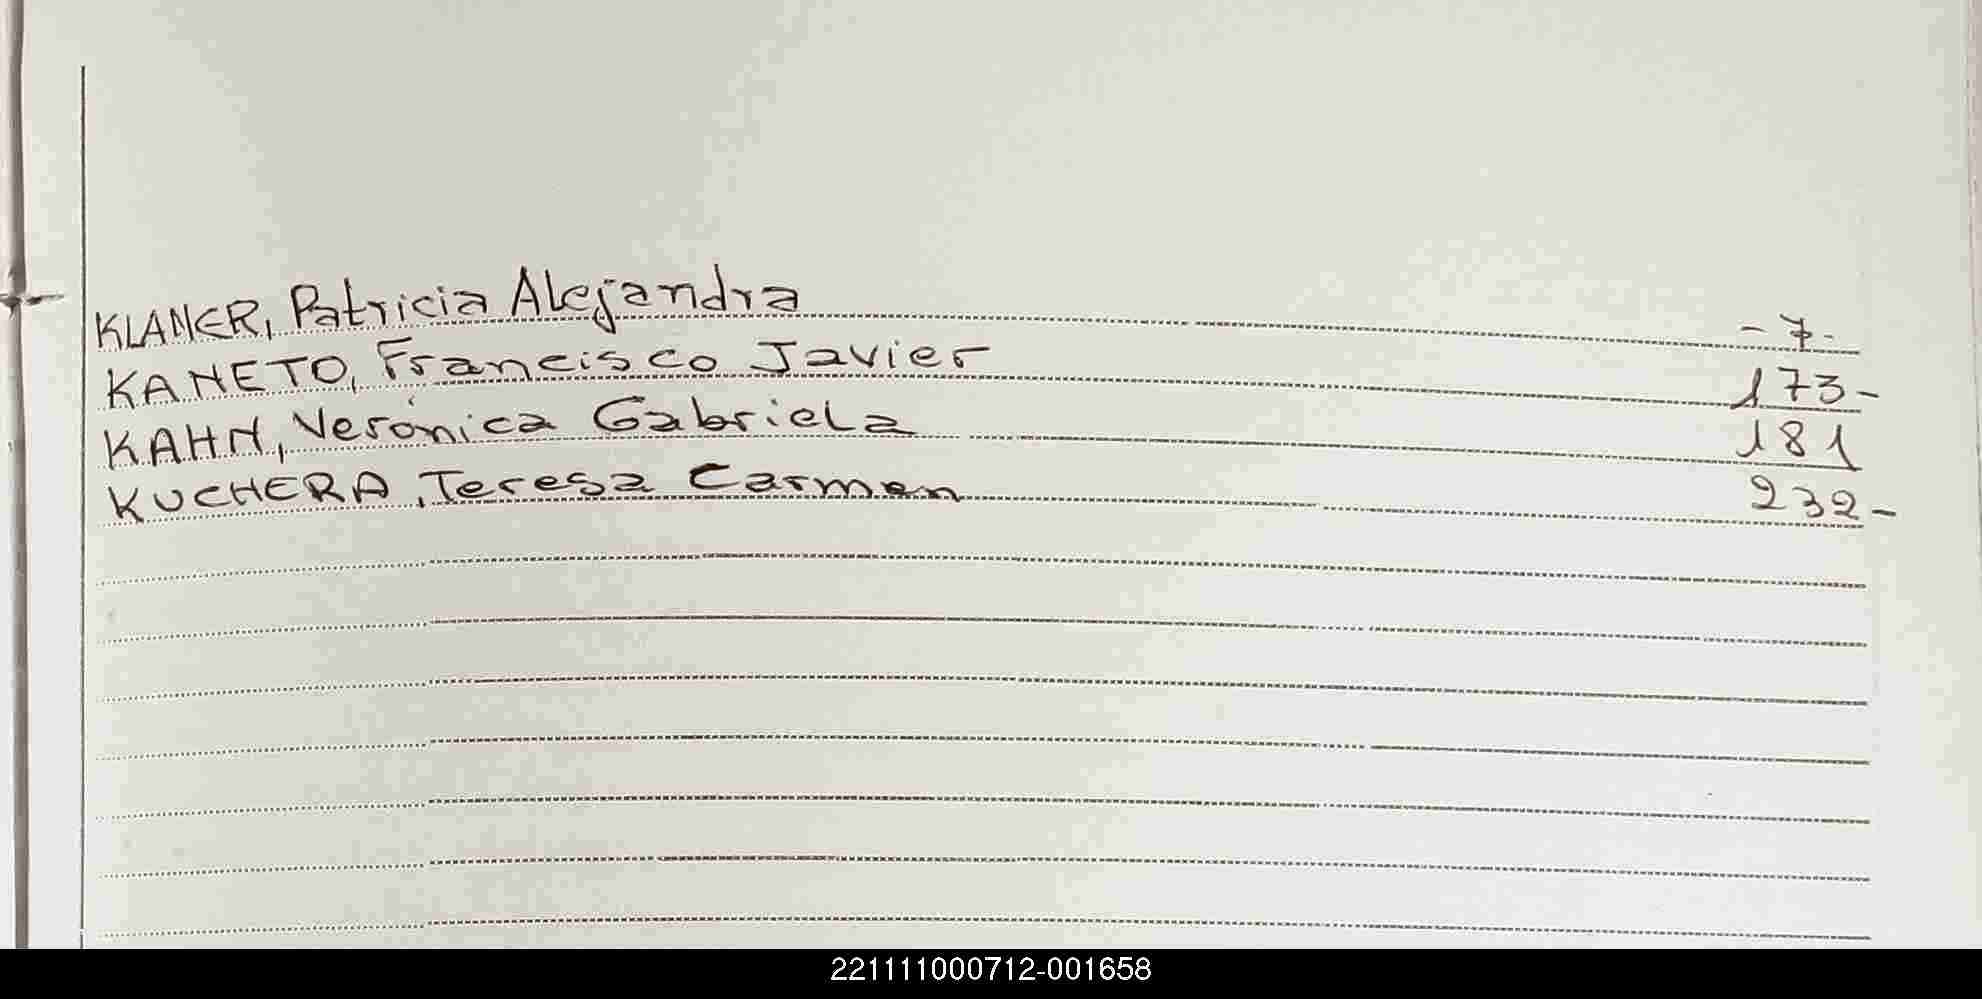 KLANER, Patricia Alejandra - 7 -
KANETO, Francisco Javier 173 -
KAHN, Verónica Gabriela 181
KUCHERA, Teresa Carmen 232 -
221111000712-001658